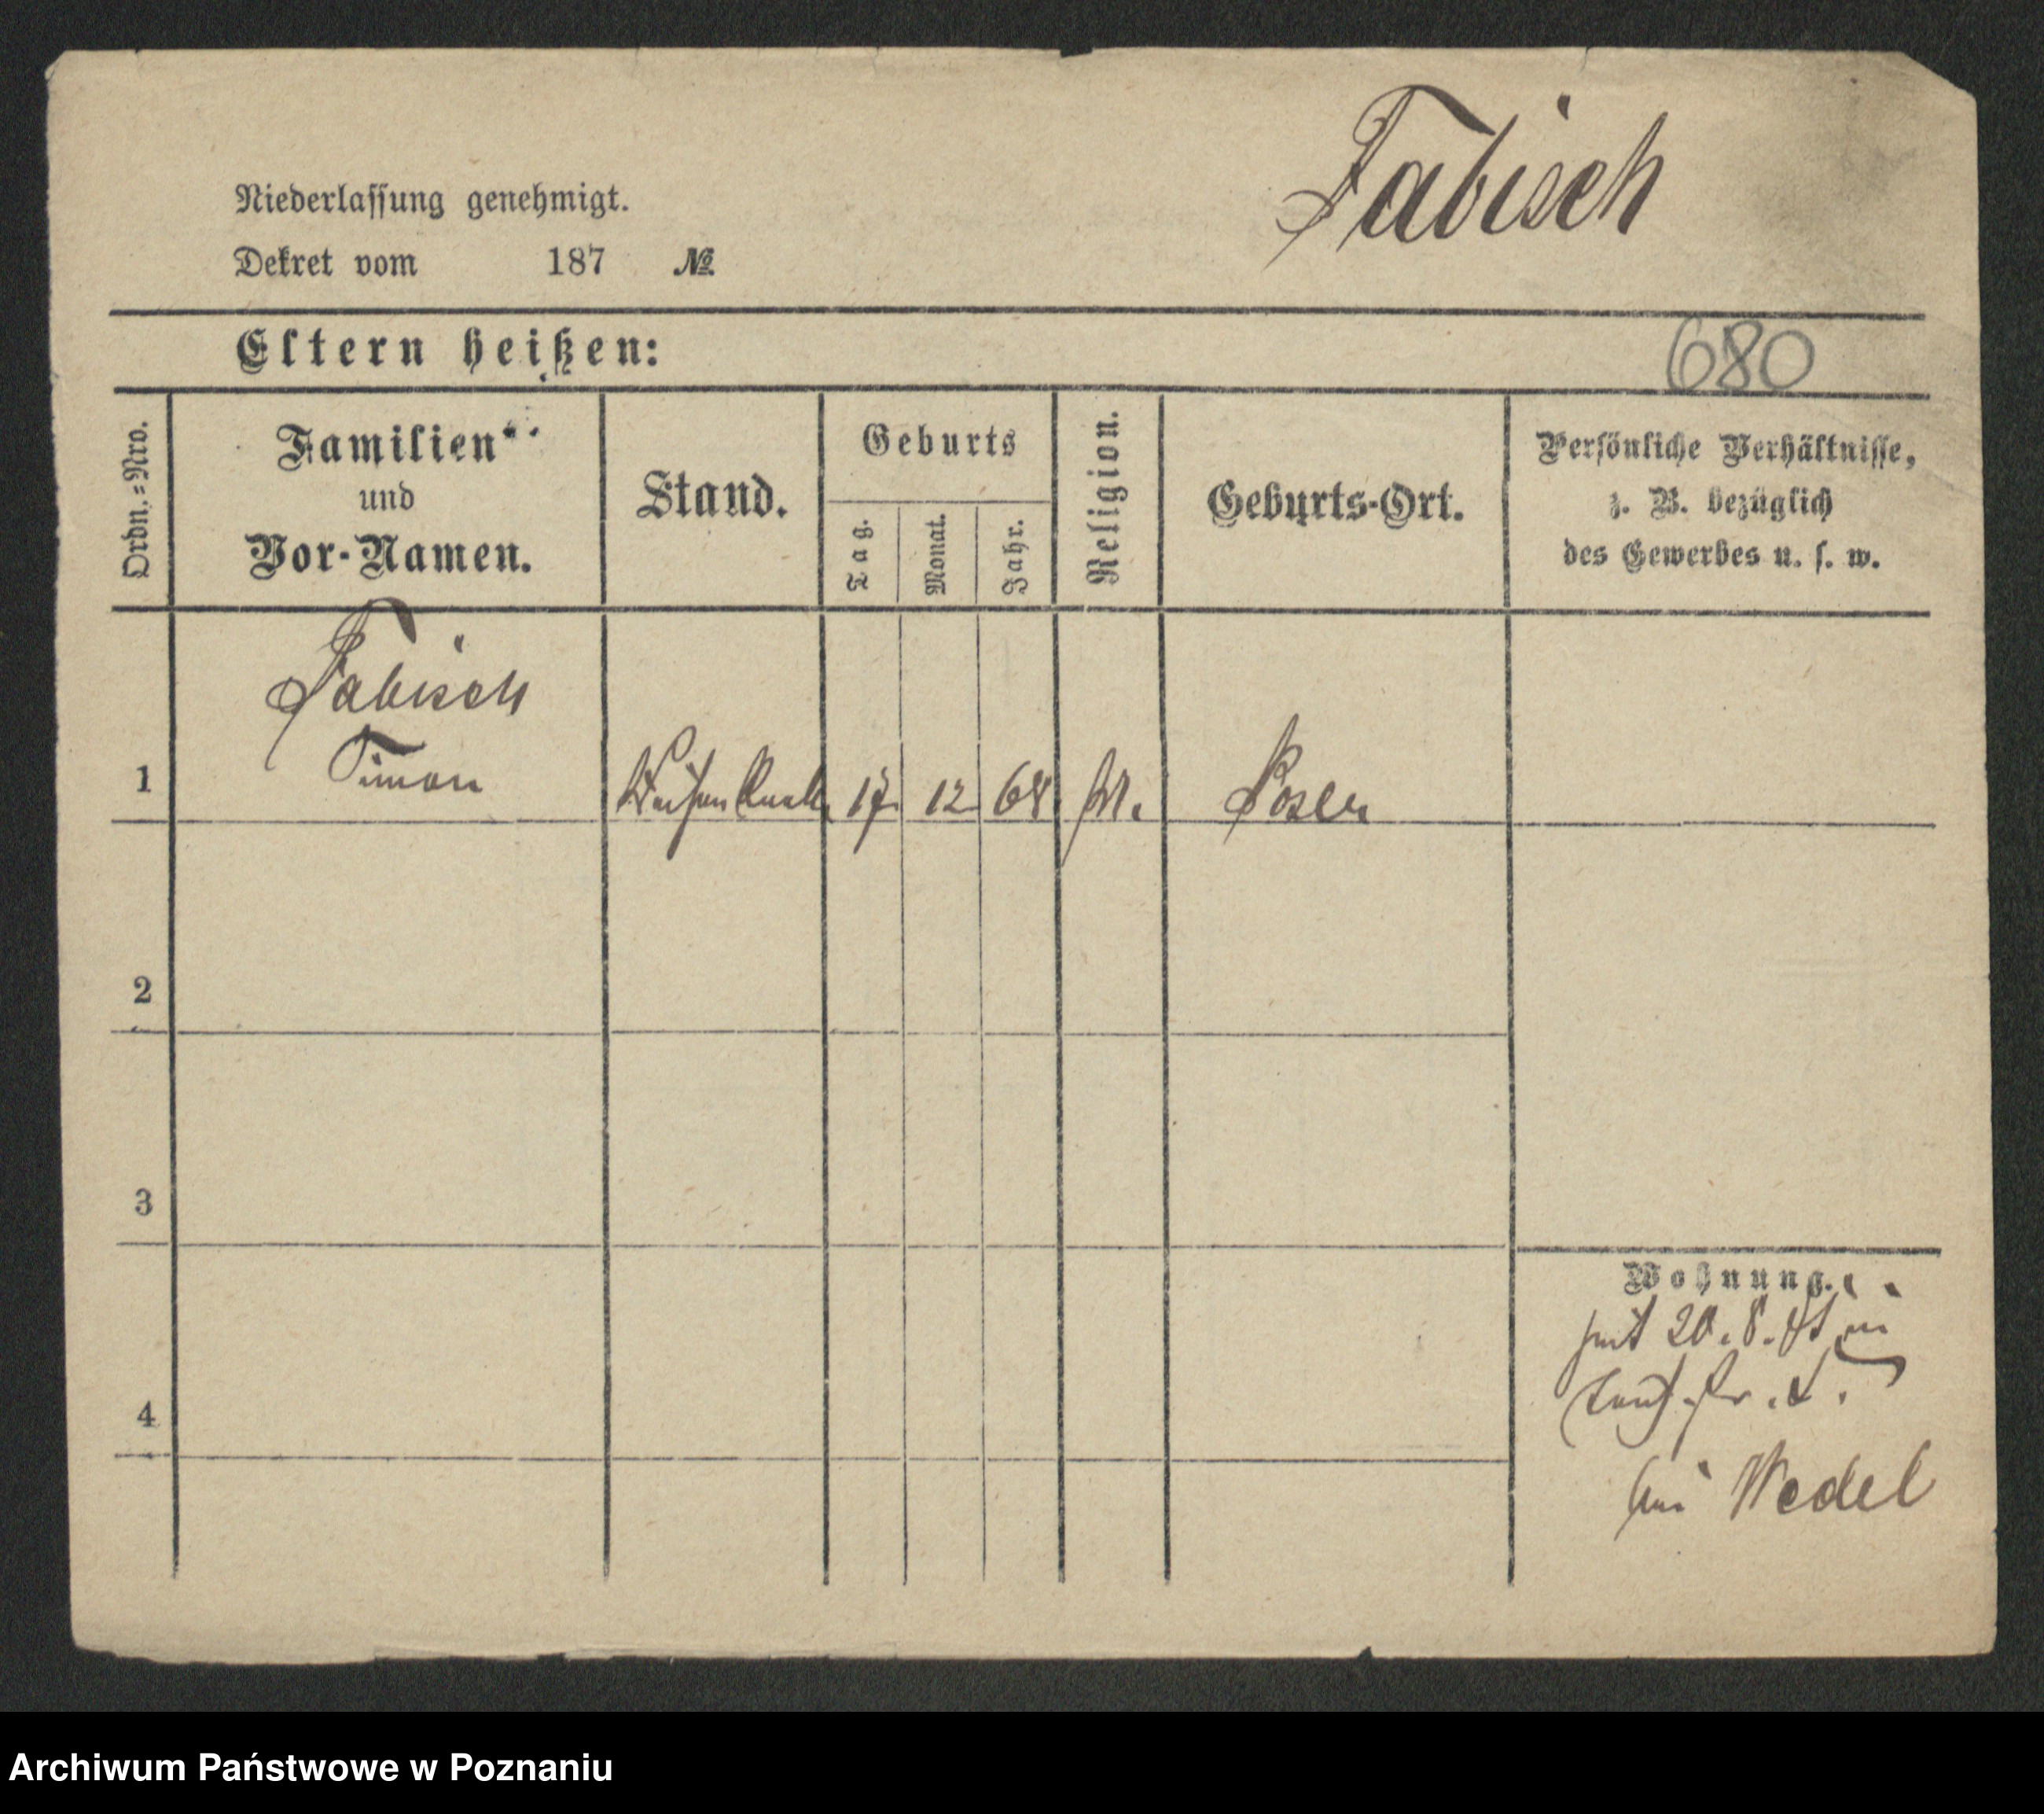 Fabisch
Niederlassung genehmigt.
Dekret vom 187 №
Eltern heißen:
680
Ordn.=Nro.
Familien=
und
Vor-Namen.
Stand.
Geburts
Tag.
Monat.
Jahr.
Religion.
Geburts-Ort.
Persönliche Verhältnisse,
z. B. bezüglich
des Gewerbes u. s. w.
Fabisch
Simon
1 Waisenknabe 17 12 68 Posen
2
3
Wohnung.
seit 20. 8.
4
bei Wedel
Archiwum Państwowe w Poznaniu